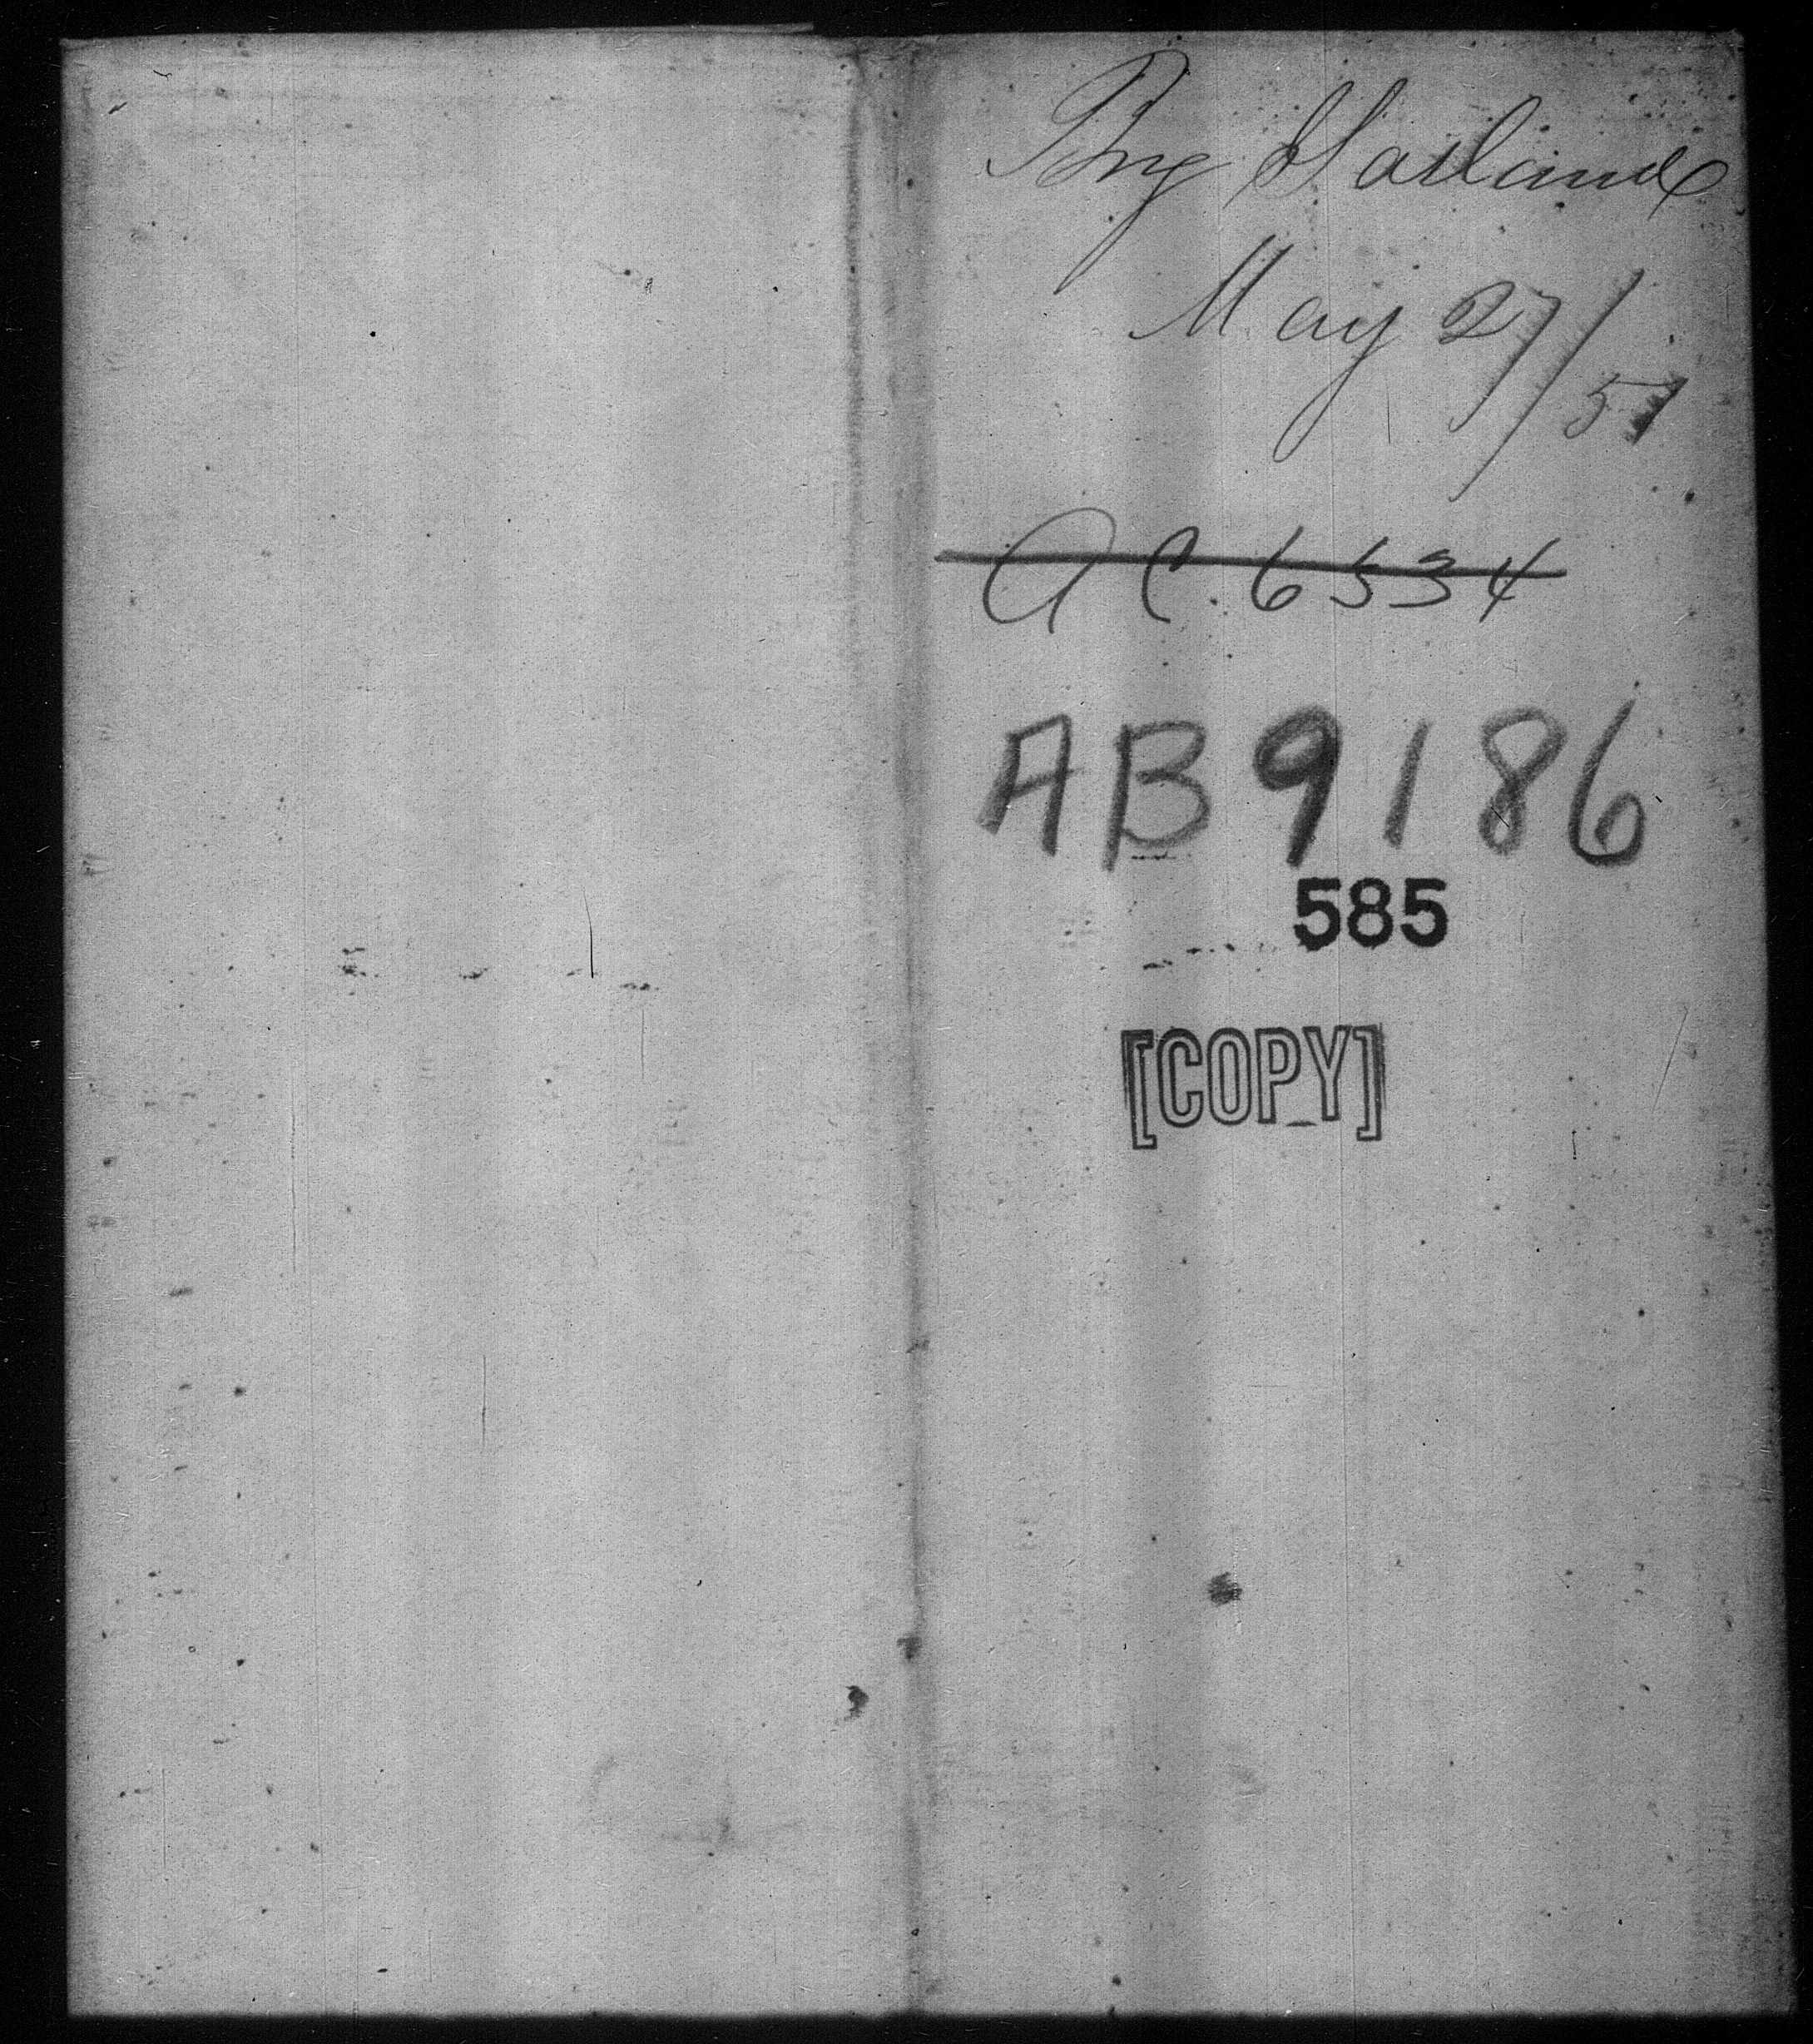 Garland
May 27/51
AC. 6534
AB 9186
585
[COPY]